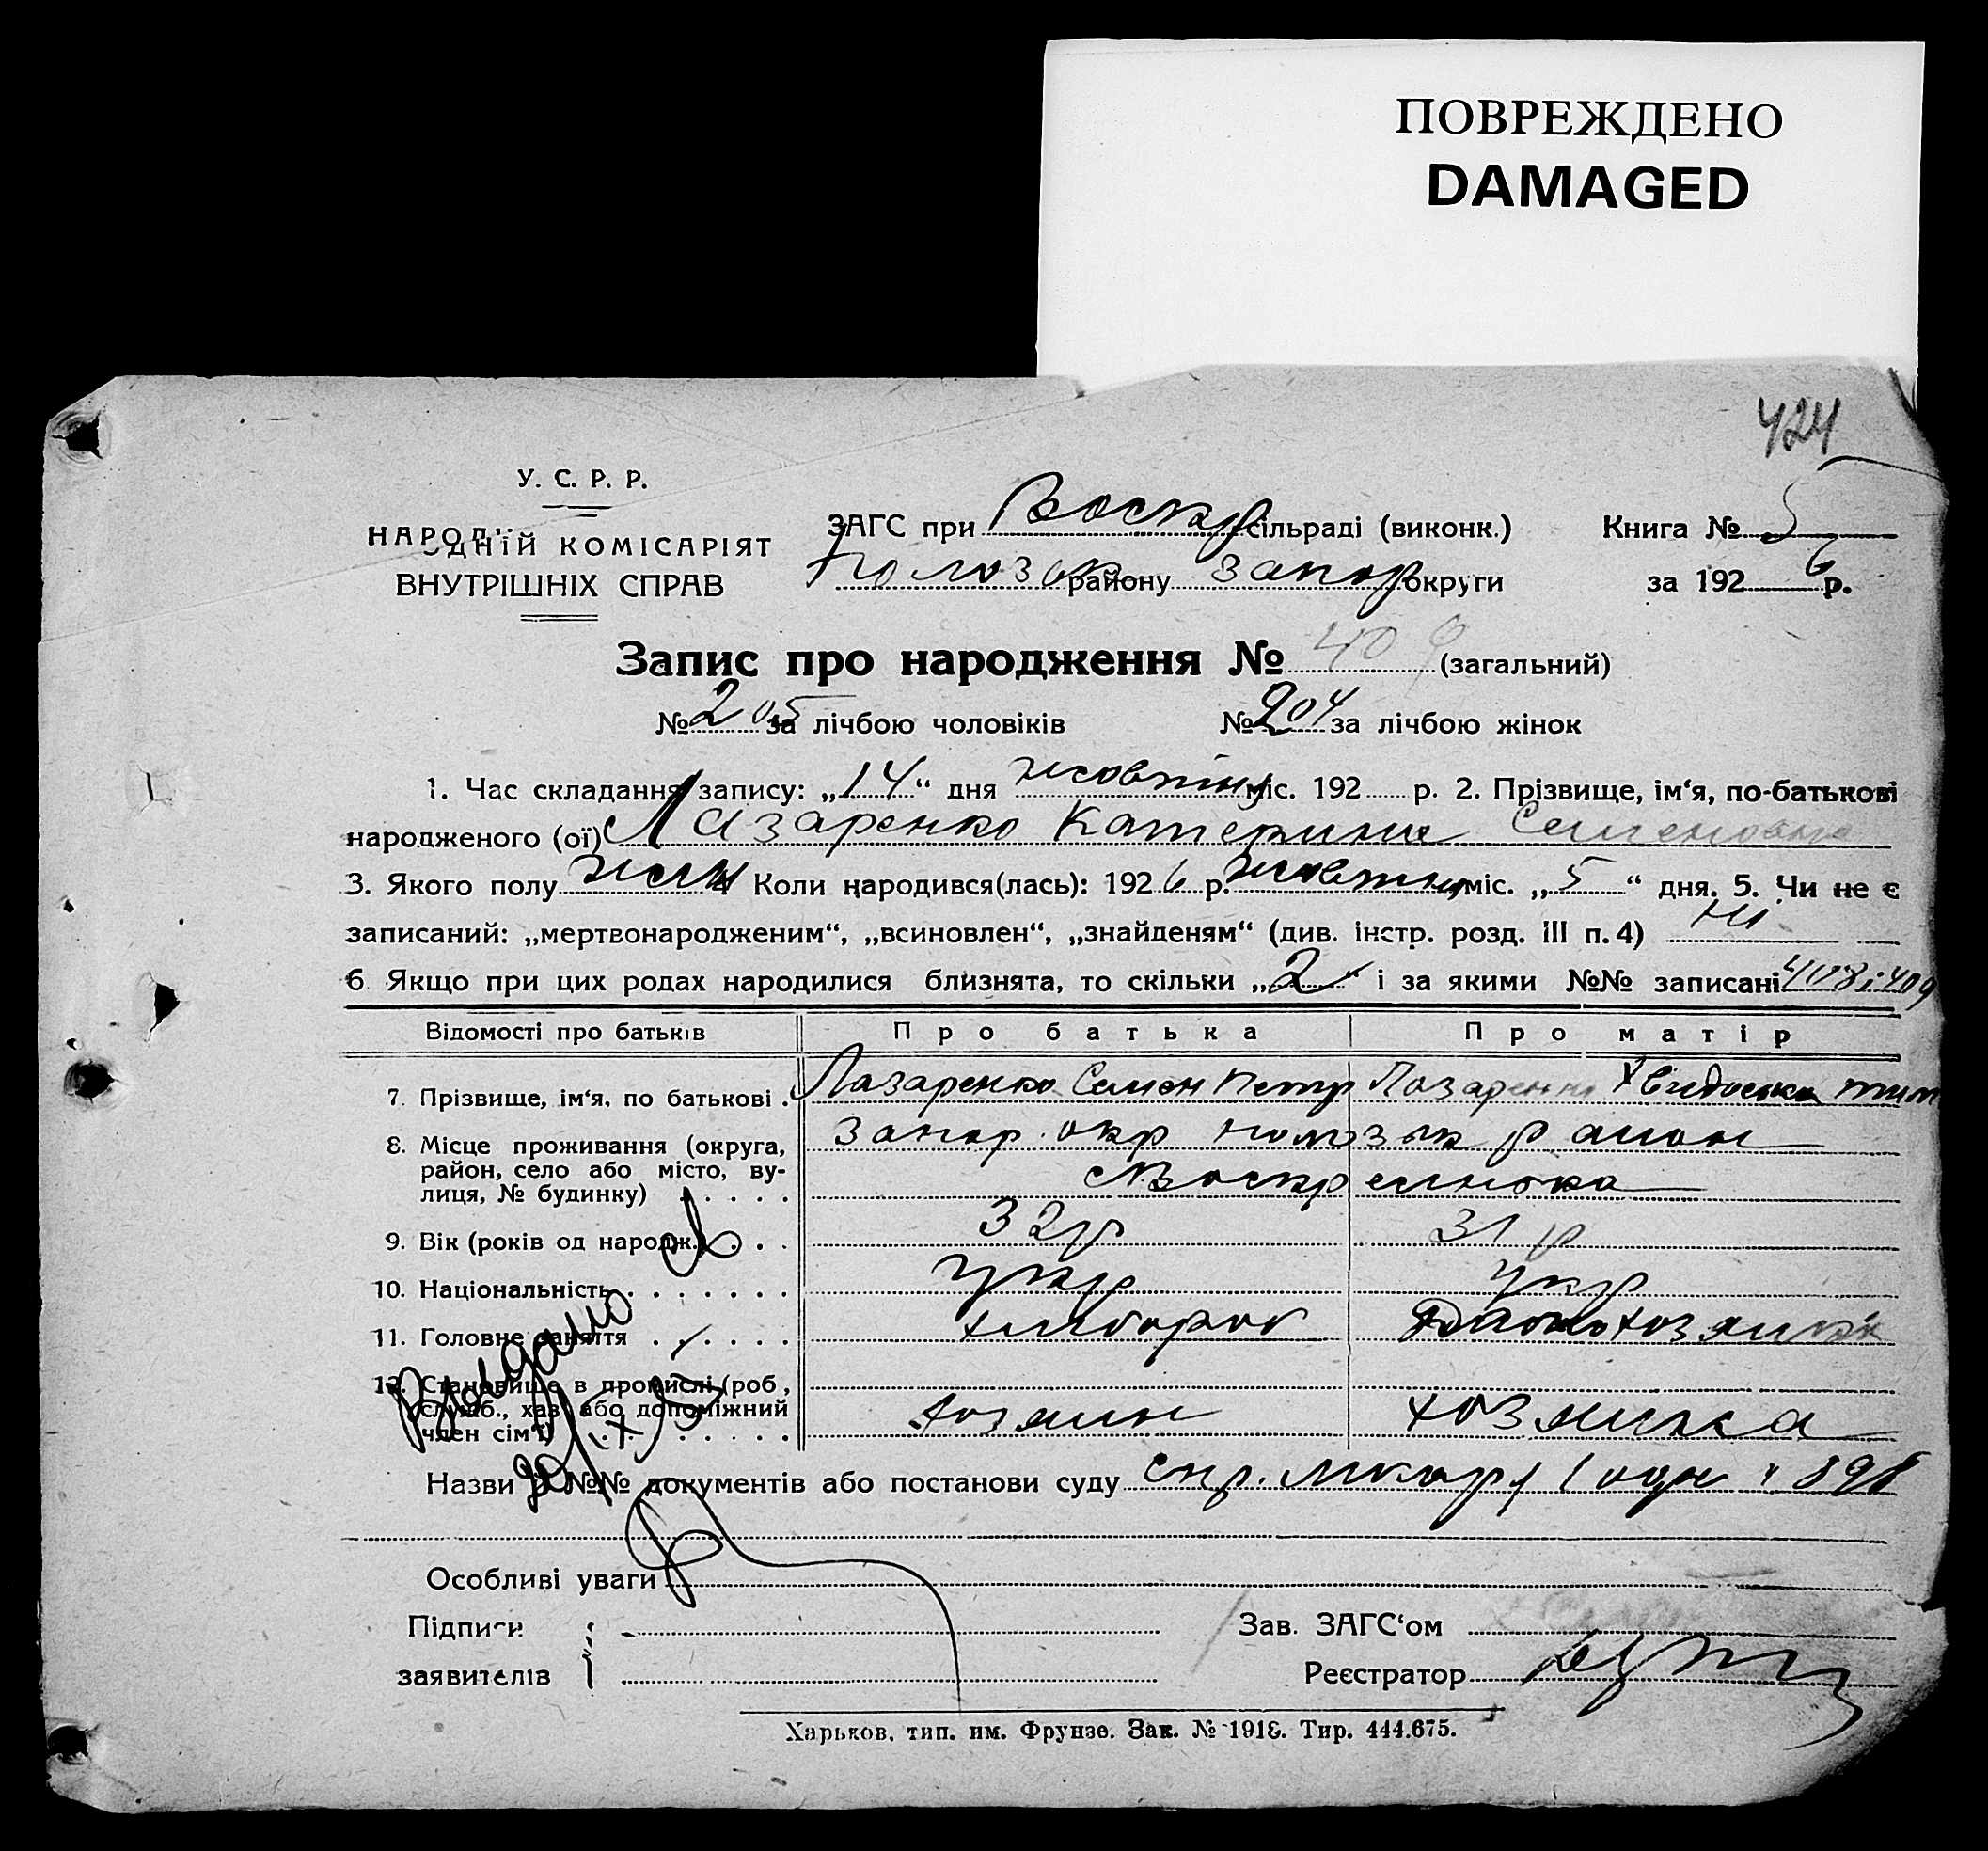 ПОВРЕЖДЕНО
DAMAGED
424
У. С. Р. Р.
НАРОДНІЙ КОМІСАРІЯТ
ВНУТРІШНІХ СПРАВ
ЗАГС при Воскр сільраді (виконк.) Книга № 5
Полозьк району Запор округи за 1926 р.
Запис про народження № 409 (загальний)
№ 205 за лічбою чоловіків № 204 за лічбою жінок
1. Час складання запису: „14“ дня жовтня міс. 192 р. 2. Прізвище, ім‘я, по-батькові
народженого (ої) Лазаренко Катерина Семеновна
3. Якого полу жін 4 Коли народився(лась): 1926 р. жовтня міс. „5“ дня. 5. Чи не є
записаний: „мертвонародженим“, „всиновлен“, „знайденям“ (див. інстр. розд. III п. 4) ні
6 Якщо при цих родах народилися близнята, то скільки „2“ і за якими №№ записані 408 і 409
Відомості про батьків Про батька Про матір
7. Прізвище, ім‘я, по батькові . Лазаренко Семен Петр Лазаренко Хвидоська Тим
8. Місце проживання (округа, Запор. окр Полозьк район
район, село або місто, ву- с Воскресенка
лиця, № будинку) . . . . .
9. Вік (років од народж.) . . . 32 р 31 р
10. Національність . . . . . . . укр укр
11. Головне заняття . . . . хлібороб хозяйка
12. Становище в промислі (роб,
служб., хаз. або допоміжний хозяин хозяйка
член сім‘ї) . . . . . . . .
Видано
Назви і №№ документів або постанови суду спр. лікаря
Особливі уваги
Підписи Зав. ЗАГС‘ом
заявителів Реєстратор
Харьков, тип. им. Фрунзе. Зак. № 1918. Тир. 444.675.